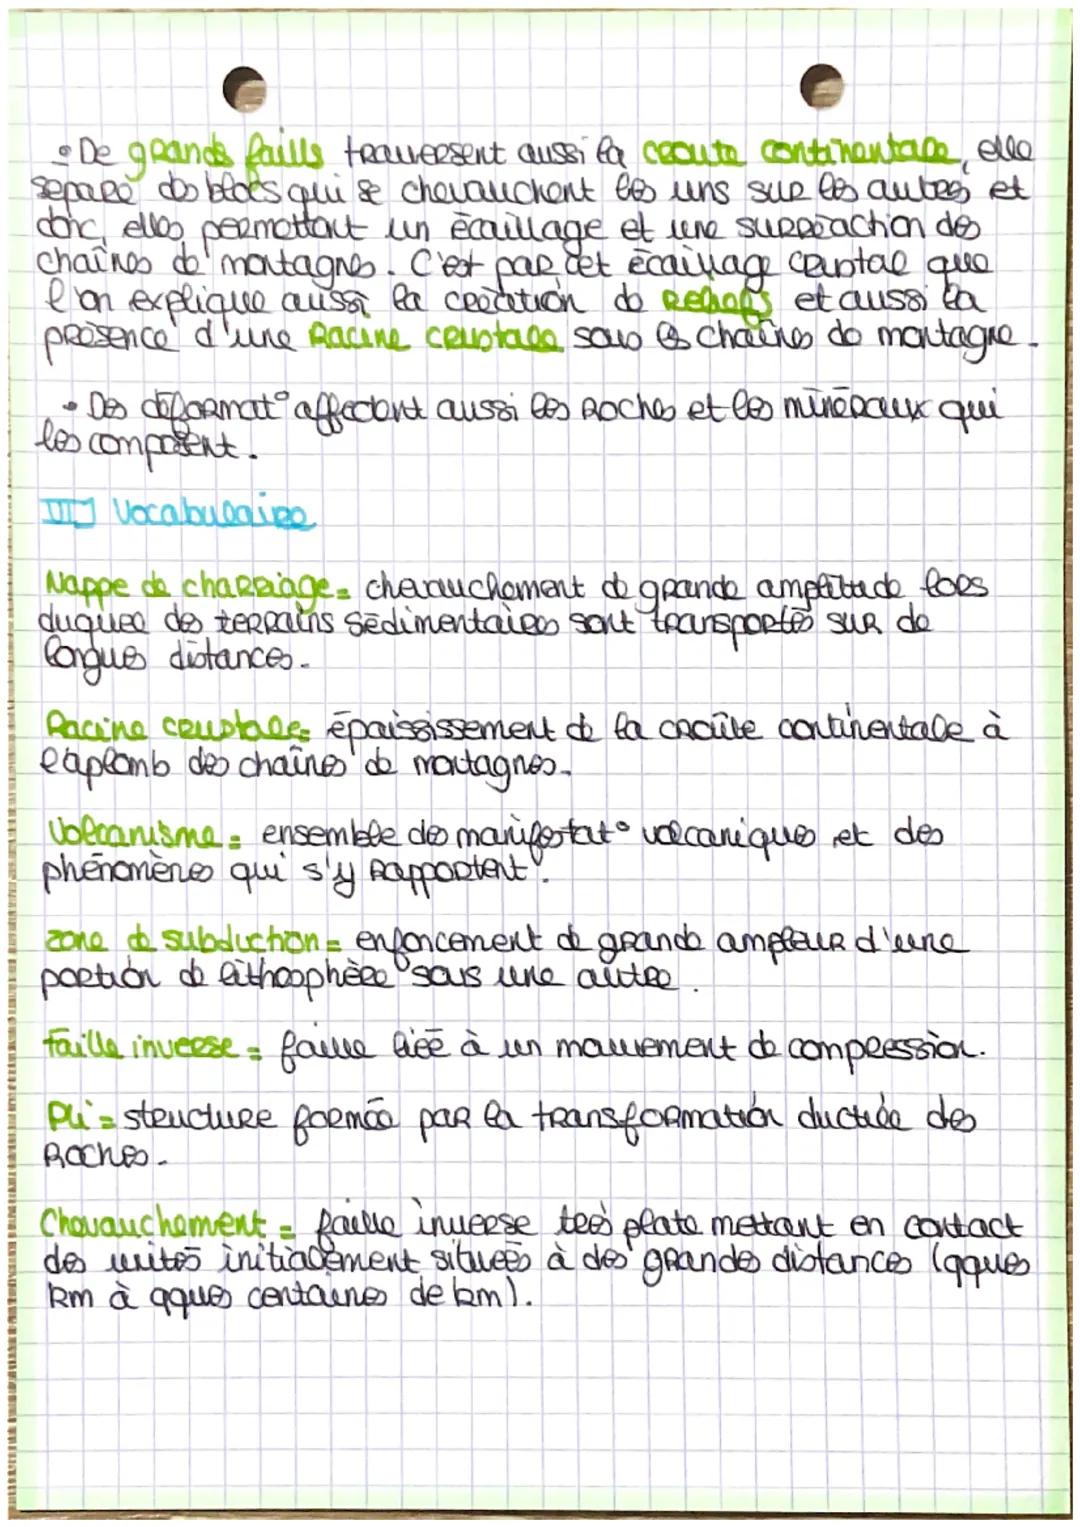 • De grands faills traversent aussi la croute continentale, elle
separe des blocs qui se chevauchent les uns sur les autres, et
donc, elles permettant un écaillage et une surréaction des
chaînes de montagnes. C'est par cet écaillage crustal que
l'on explique aussi la création de Reliefs et aussi la
présence d'une Racine crustale sous les chaînes de montagne.
• Des déformat° affectent aussi les Roches et les minéraux qui
les composent.
III] Vocabulaire
Nappe de charriage = chevauchement de grande amplitude lors
duquel des terrains sédimentaires sont transportés sur de
longues distances.
Racine crustale = épaississement de la croûte continentale à
l'aplomb des chaînes de montagnes.
Volcanisme = ensemble des manifestat° volcaniques et des
phénomènes qui s'y rapportent.
zone de subduction = enfoncement de grande ampleur d'une
portion de lithosphère sous une autre.
Faille inverse = faille liée à un mouvement de compression.
Pli = structure formée par la transformation ductile des
Roches.
Chevauchement = faille inverse très plate mettant en contact
des unités initialement situées à des grandes distances (qques
km à qques centaines de km).